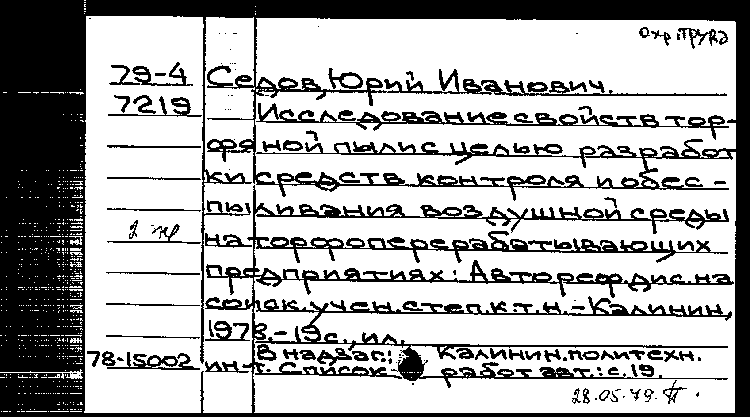 Охр. труда
79-4 Седов, Юрий Иванович.
7219 Исследование свойств тор-
фяной пыли с целью разработ
ки средств контроля и обес-
пыливания воздушной среды
2 экр на торфоперерабатывающих
предприятиях: Автореф. дис. на
соиск. учен. степ. к.т.н. - Калинин,
1978. - 19 с., ил.
В надзаг.: Калинин. политехн.
78-15002 ин-т. Список работ авт.: с. 19.
28.05.79